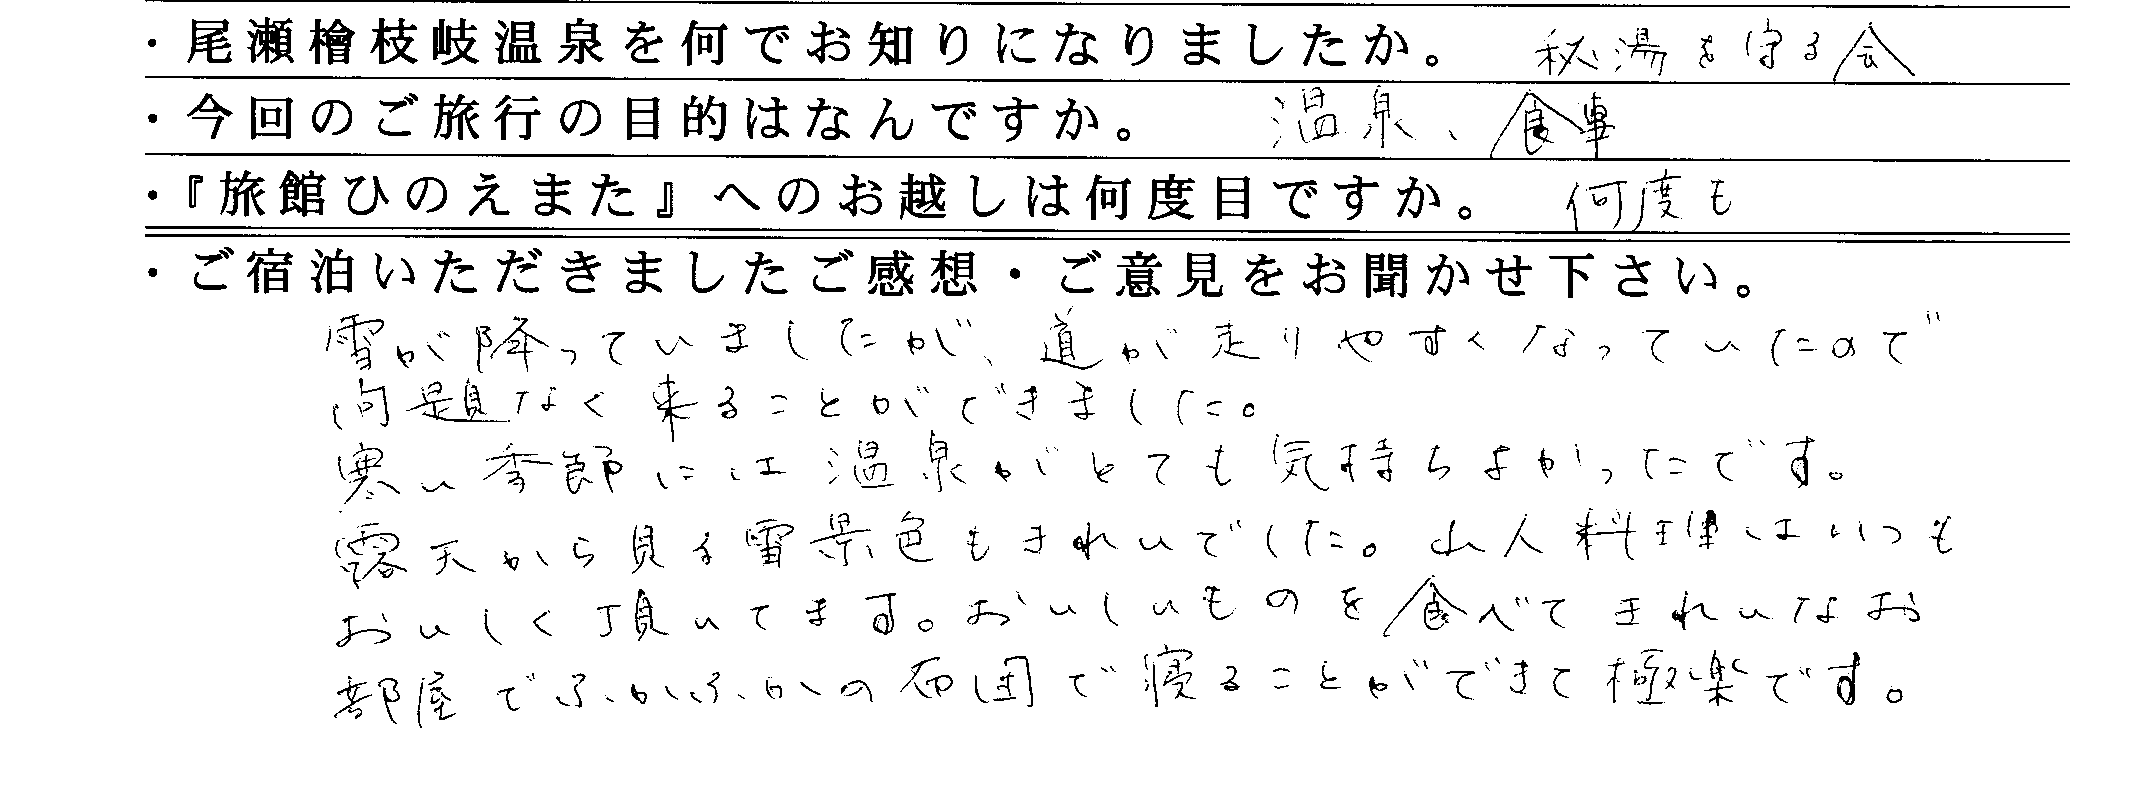 ・尾瀬檜枝岐温泉を何でお知りになりましたか。 秘湯を守る会
・今回のご旅行の目的はなんですか。 温泉、食事
・『旅館ひのえまた』へのお越しは何度目ですか。 何度も
・ご宿泊いただきましたご感想・ご意見をお聞かせ下さい。
雪が降っていましたが、道が走りやすくなっていたので
問題なく来ることができました。
寒い季節には温泉がとても気持ちよかったです。
露天から見る雪景色もきれいでした。山人料理はいつも
おいしく頂いてます。おいしいものを食べてきれいなお
部屋でふかふかの布団で寝ることができて極楽です。